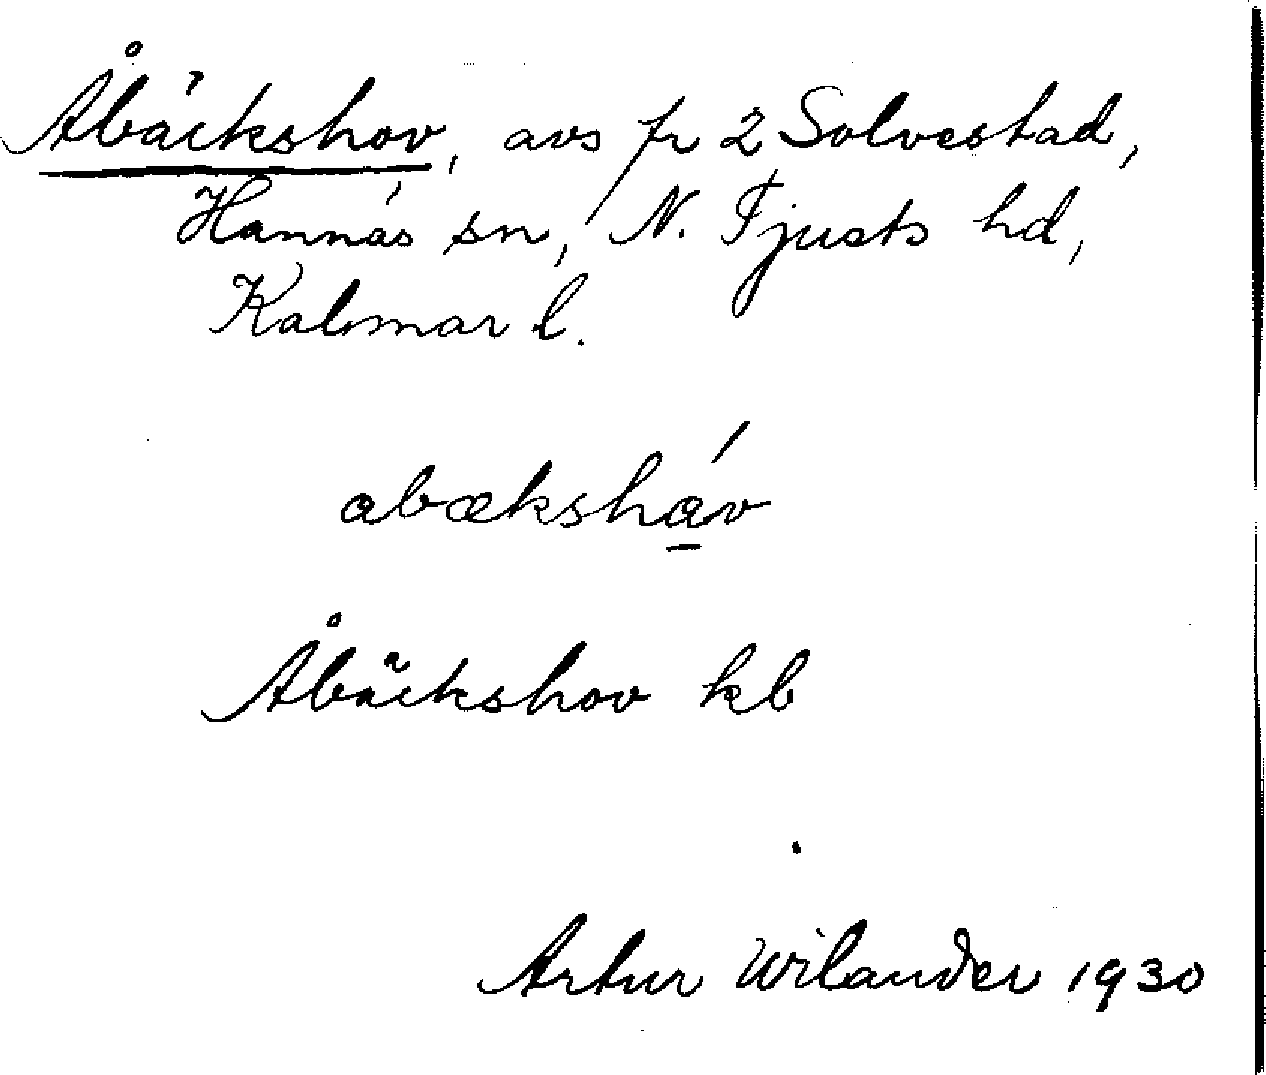 Åbäckshov, avs fr 2 Solvestad,
Hannäs sn, N. Tjusts hd,
Kalmar l.
abæksháv
Åbäckshov kb
Artur Wilander 1930